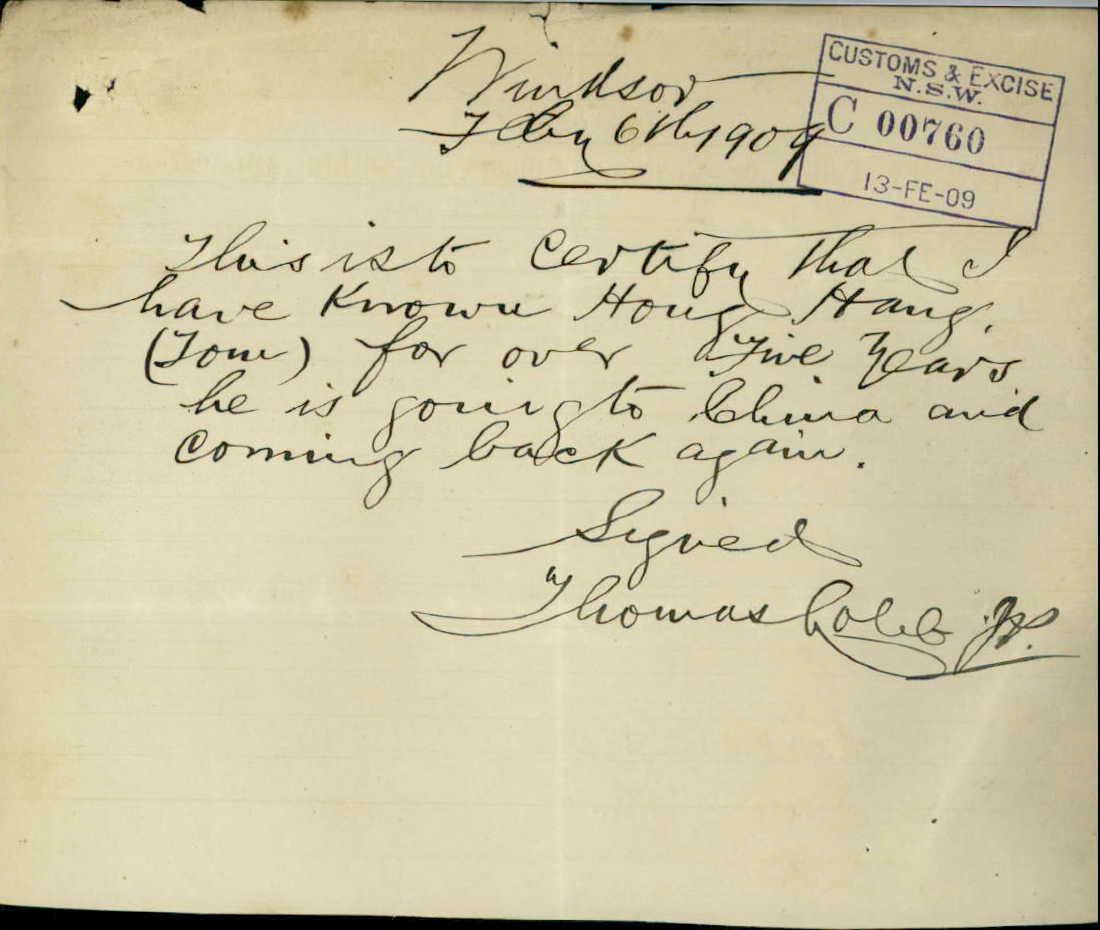 Windsor
Feby 6th 1909
CUSTOMS & EXCISE
N.S.W.
C 00760
13-FE-09
This is to certify that I
have Known Hong Hang.
(Tom) for over Five Years
he is going to China and
coming back again.
Signed
Thomas Cobb JP.